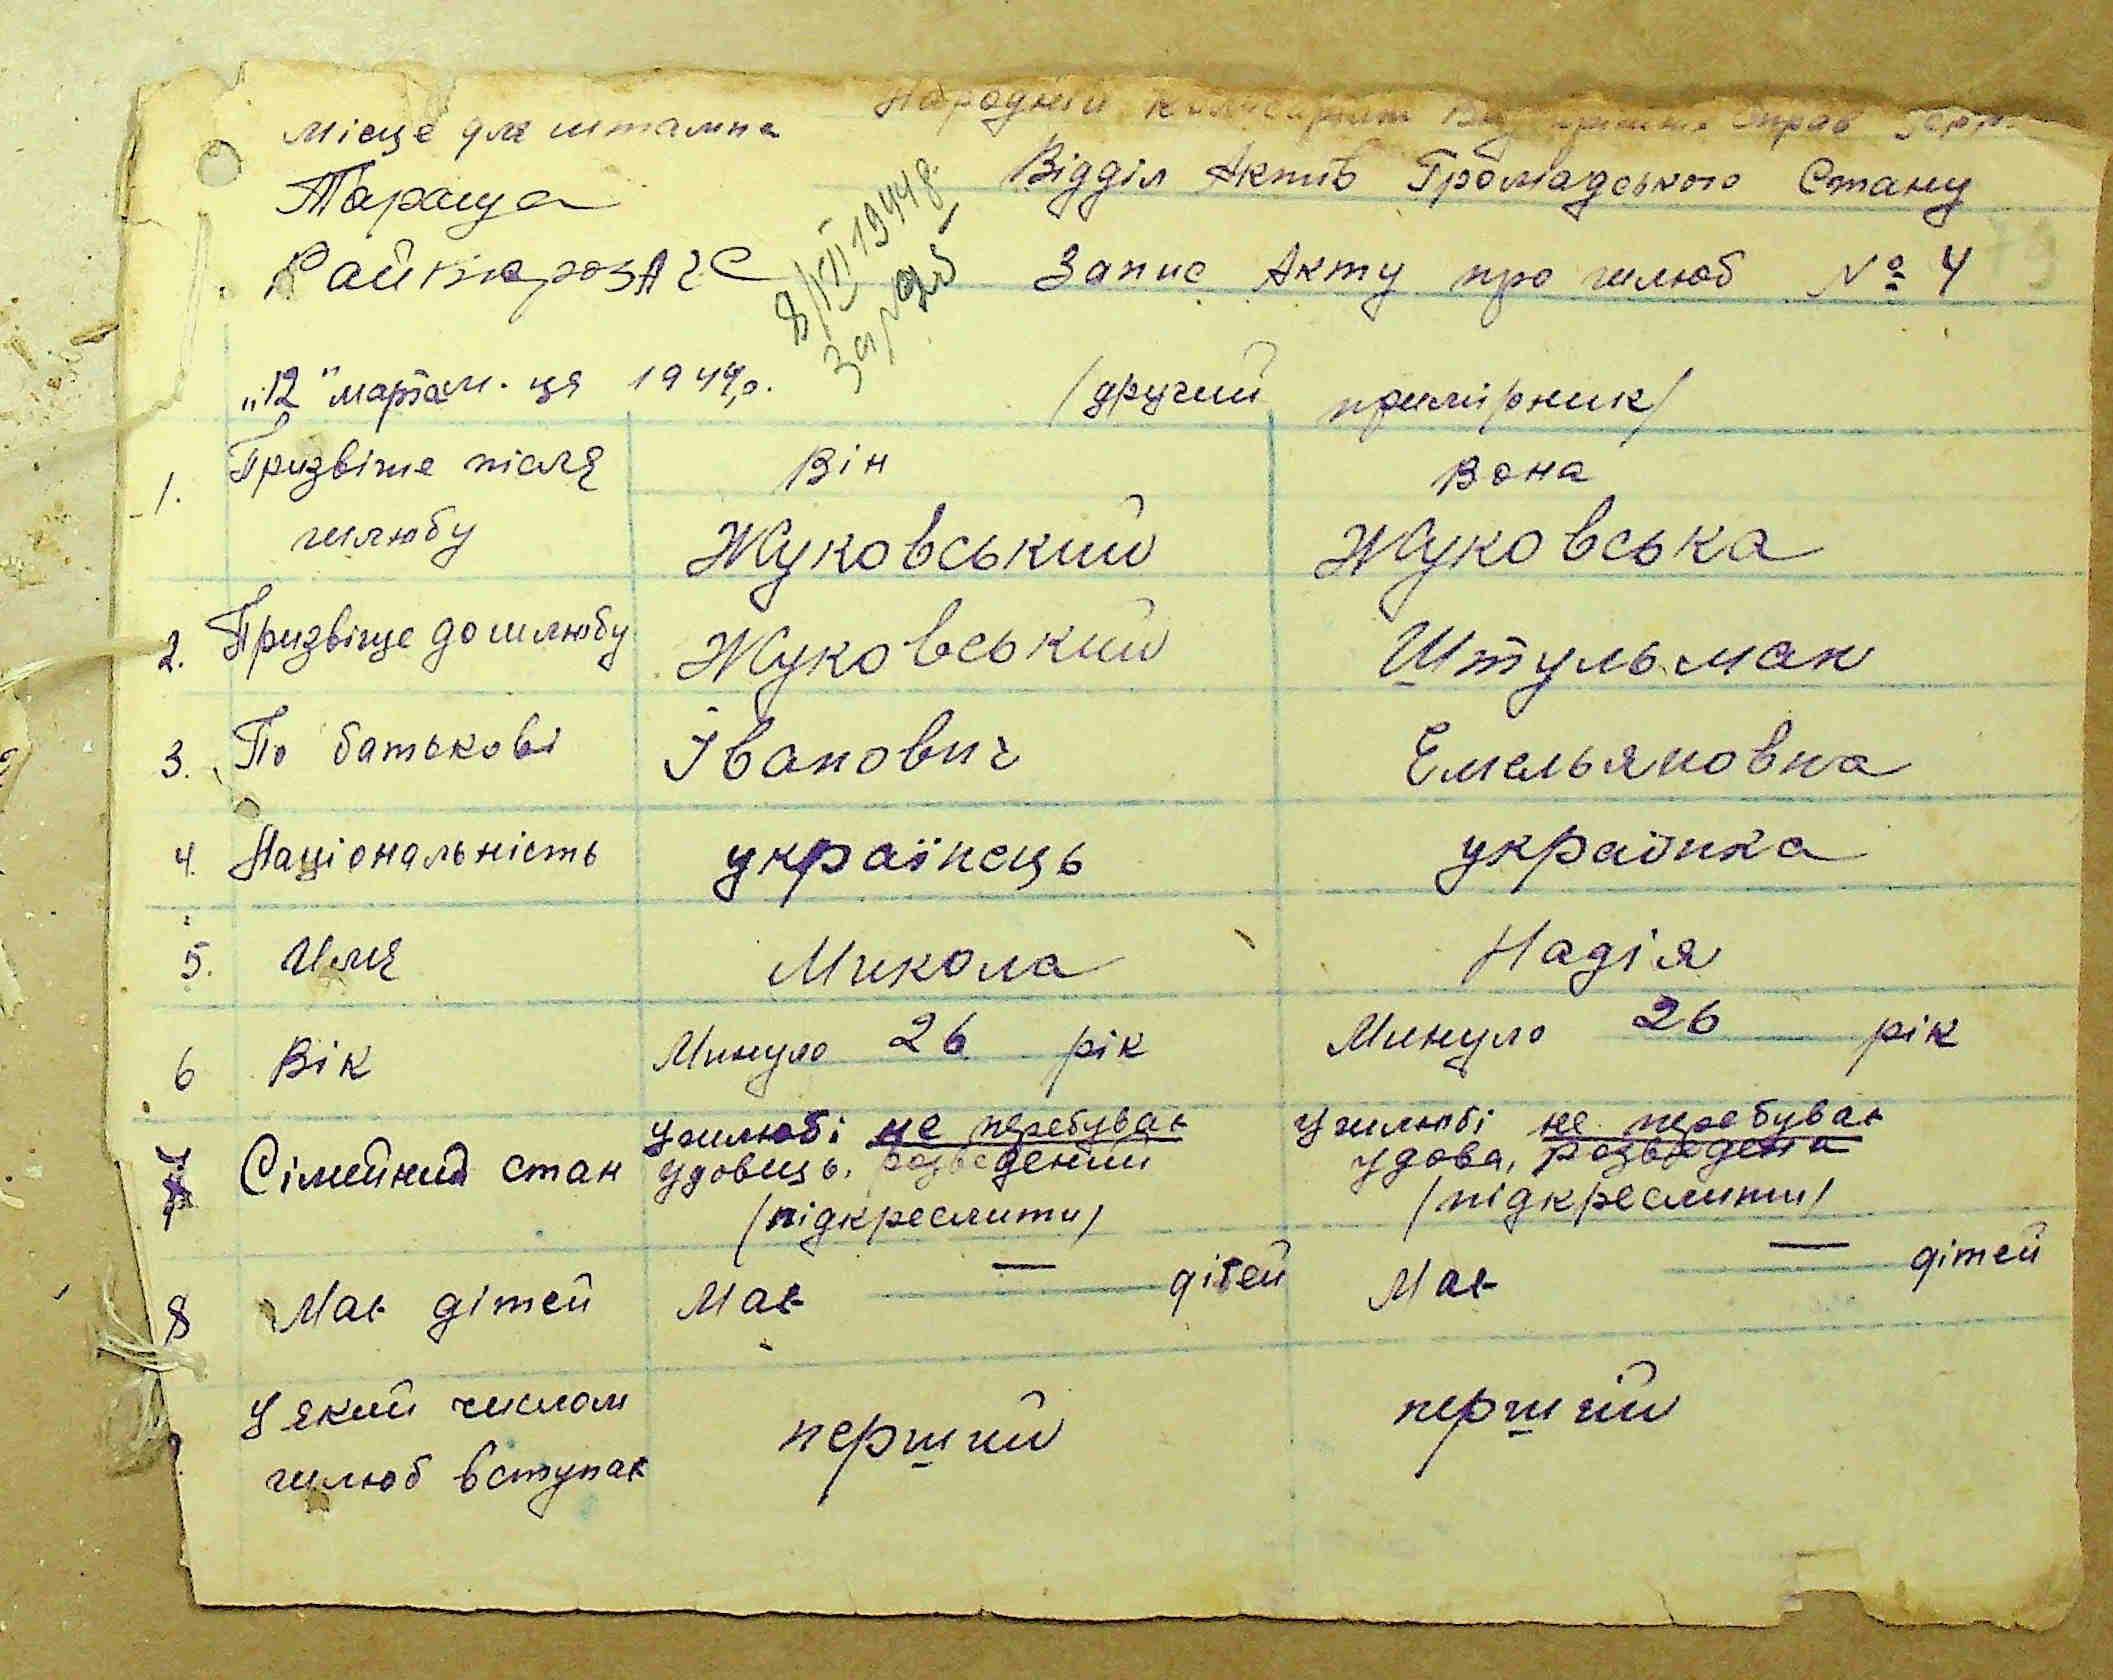 Народній Комисаріят Внутрішніх Справ УСРР
місце для штампа
Відділ Актів Громадського Стану
Тараща
РайбюроЗАГС
8/VII 1944 р.
Запис Акту про шлюб № 4
„12" марта м-ця 1944 р.
/другий примірник/
Він
Вона
1. Призвіще після шлюбу
Жуковський
Жуковська
2. Призвіще до шлюбу
Жуковський
Штульман
3. По батькові
Іванович
Емельяновна
4. Національність
українець
українка
5. Имя
Микола
Надія
6 Вік
Минуло 26 рік
Минуло 26 рік
7 Сімейний стан
У шлюбі не перебував
удовець, розведений
/підкреслити/
У шлюбі не перебуває
Удова, розведена
/підкреслити/
8 Має дітей
Має — дітей
Має — дітей
У який числом
шлюб вступає
перший
перший